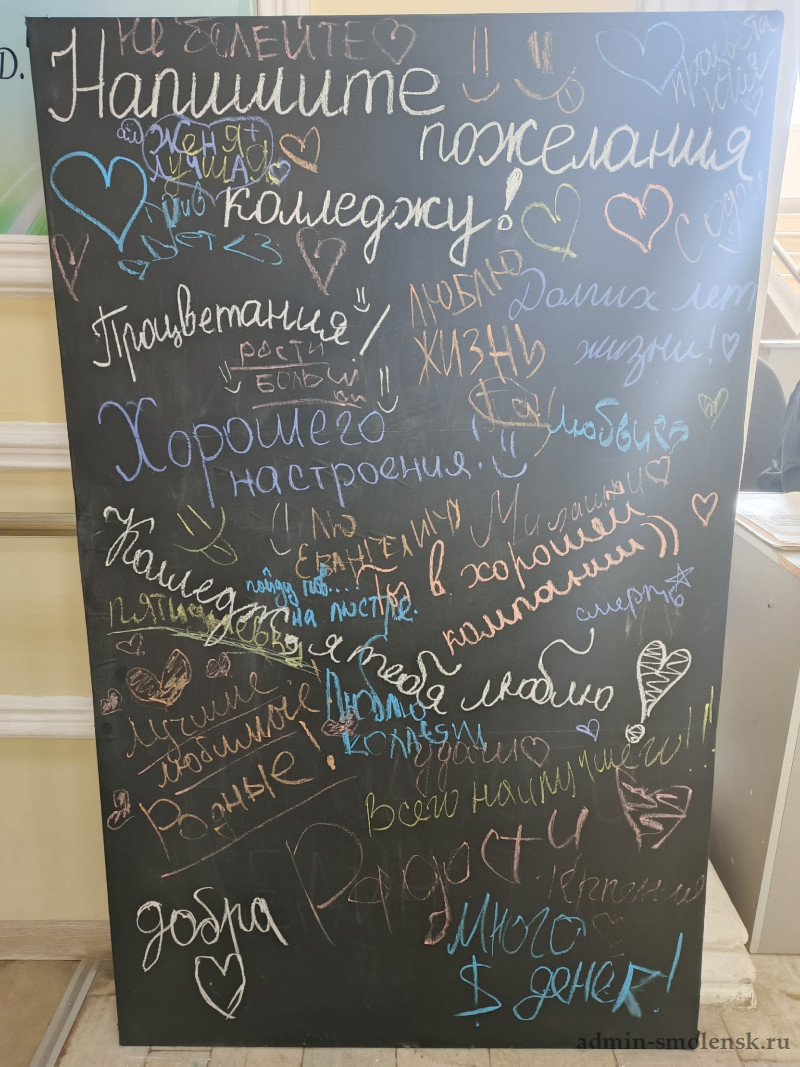 Не болейте
Напишите
пожелания
колледжу!
процвета
ния
Женя +
лучшая
С одой
Процветания!
Люблю
жизнь
Долгих лет
жизни!
расти
больш
Любви
Хорошего
настроения!
Лю
Евангеличу
Ты в хорошей
компании))
пойду пов....
на люстре.
смерть
Пятидневки
Колледж, я тебя люблю
Лучшие
любимые
Родные!
Люблю
колледж
удачи
Всего наилучшего!!!
Радости
Терпения
добра
Много
$ денег!
admin-smolensk.ru